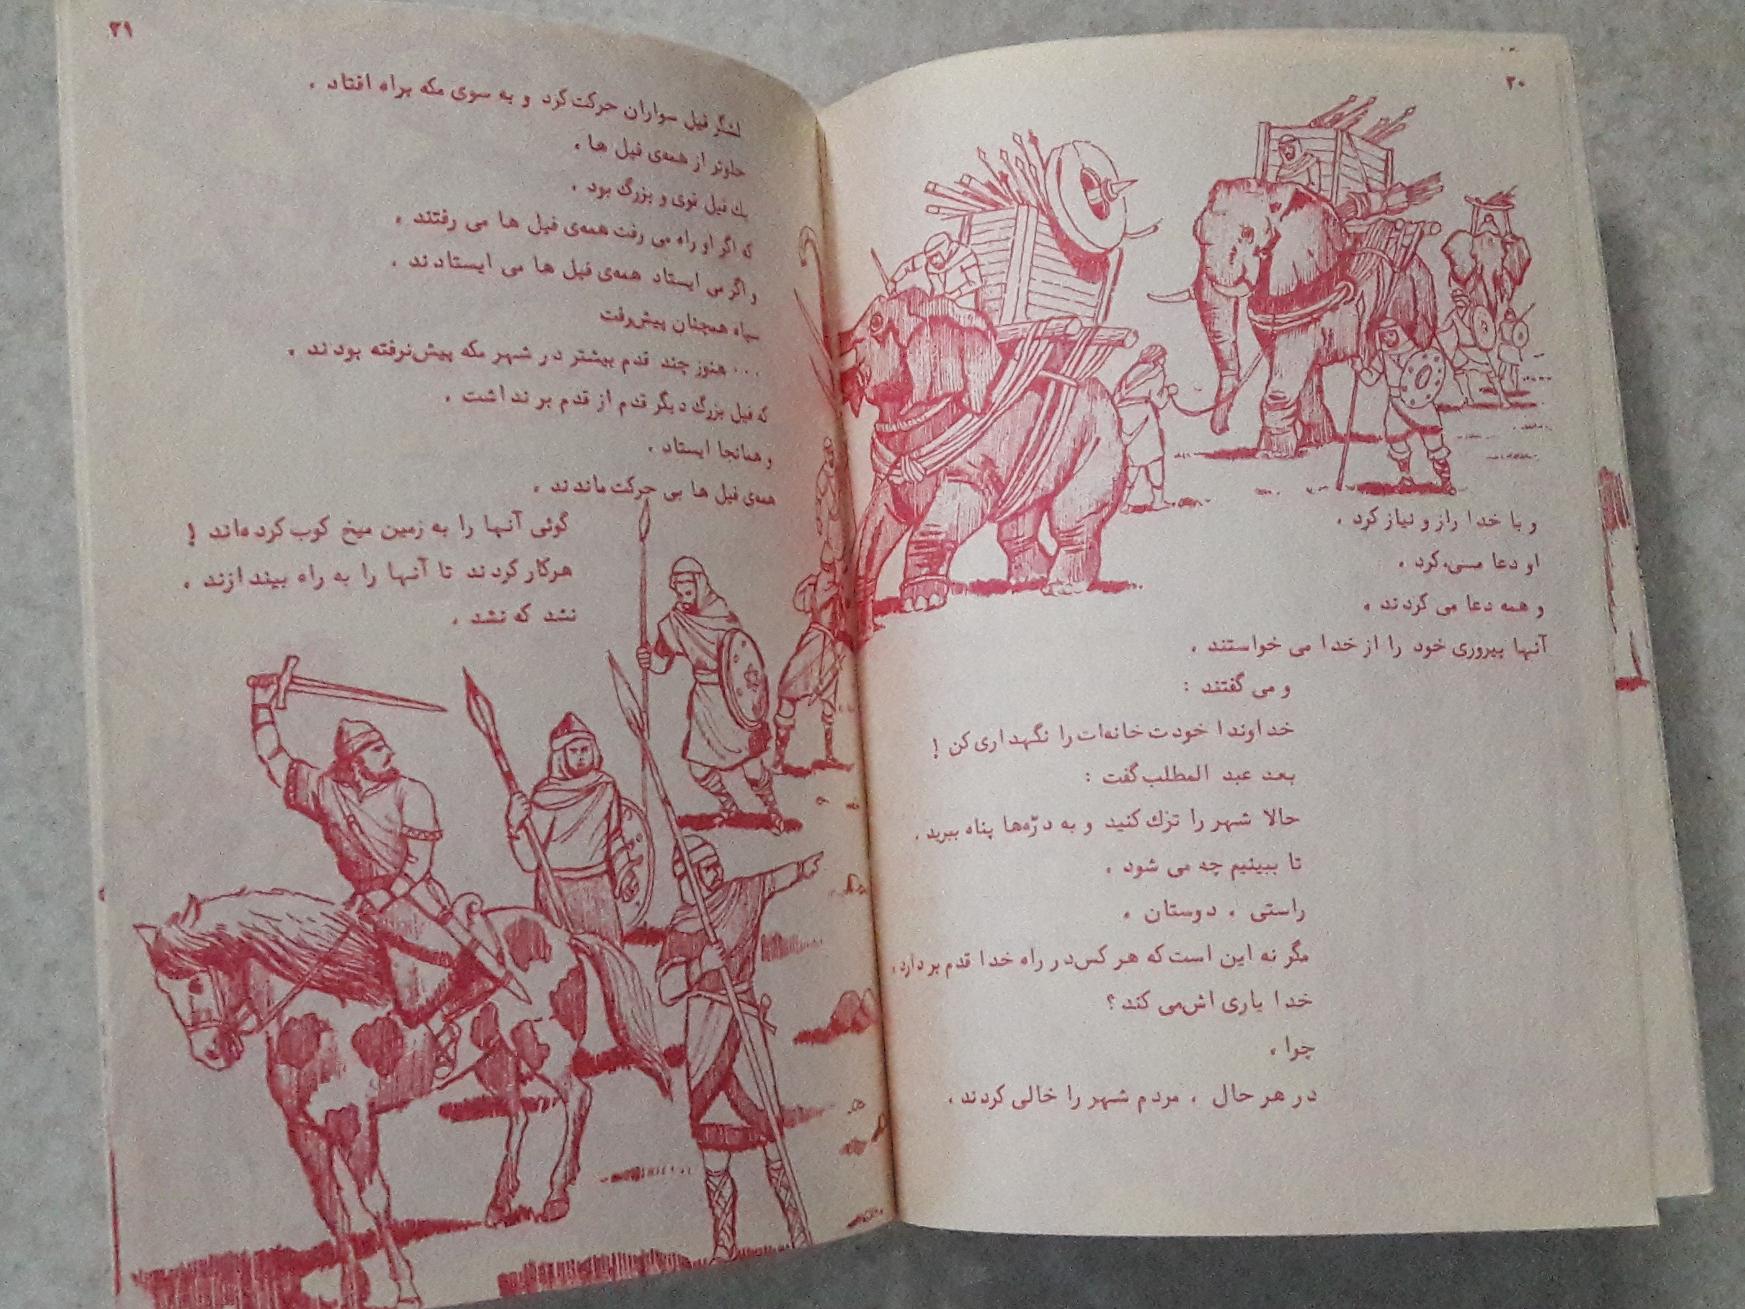 ۳۰
و با خدا راز و نیاز کرد .
او دعا می‌کرد .
و همه دعا می کردند .
آنها پیروزی خود را از خدا می خواستند .
و می گفتند :
خداوندا خودت خانه‌ات را نگهداری کن !
بعد عبد المطلب گفت :
حالا شهر را ترك کنید و به درّه‌ها پناه ببرید .
تا ببینیم چه می شود .
راستی ، دوستان ،
مگر نه این است که هر کس در راه خدا قدم بردارد،
خدا یاری اش می کند ؟
چرا .
در هر حال ، مردم شهر را خالی کردند .
۳۱
لشگر فیل سواران حرکت کرد و به سوی مکه براه افتاد .
جلوتر از همه‌ی فیل ها ،
یك فیل قوی و بزرگ بود .
که اگر او راه می رفت همه‌ی فیل ها می رفتند ،
و اگر می ایستاد همه‌ی فیل ها می ایستادند .
سپاه همچنان پیش رفت
... هنوز چند قدم بیشتر در شهر مکه پیش نرفته بودند .
که فیل بزرگ دیگر قدم از قدم بر نداشت .
و همانجا ایستاد .
همه‌ی فیل ها بی حرکت ماندند .
گوئی آنها را به زمین میخ کوب کرده‌اند !
هرکار کردند تا آنها را به راه بیندازند .
نشد که نشد .